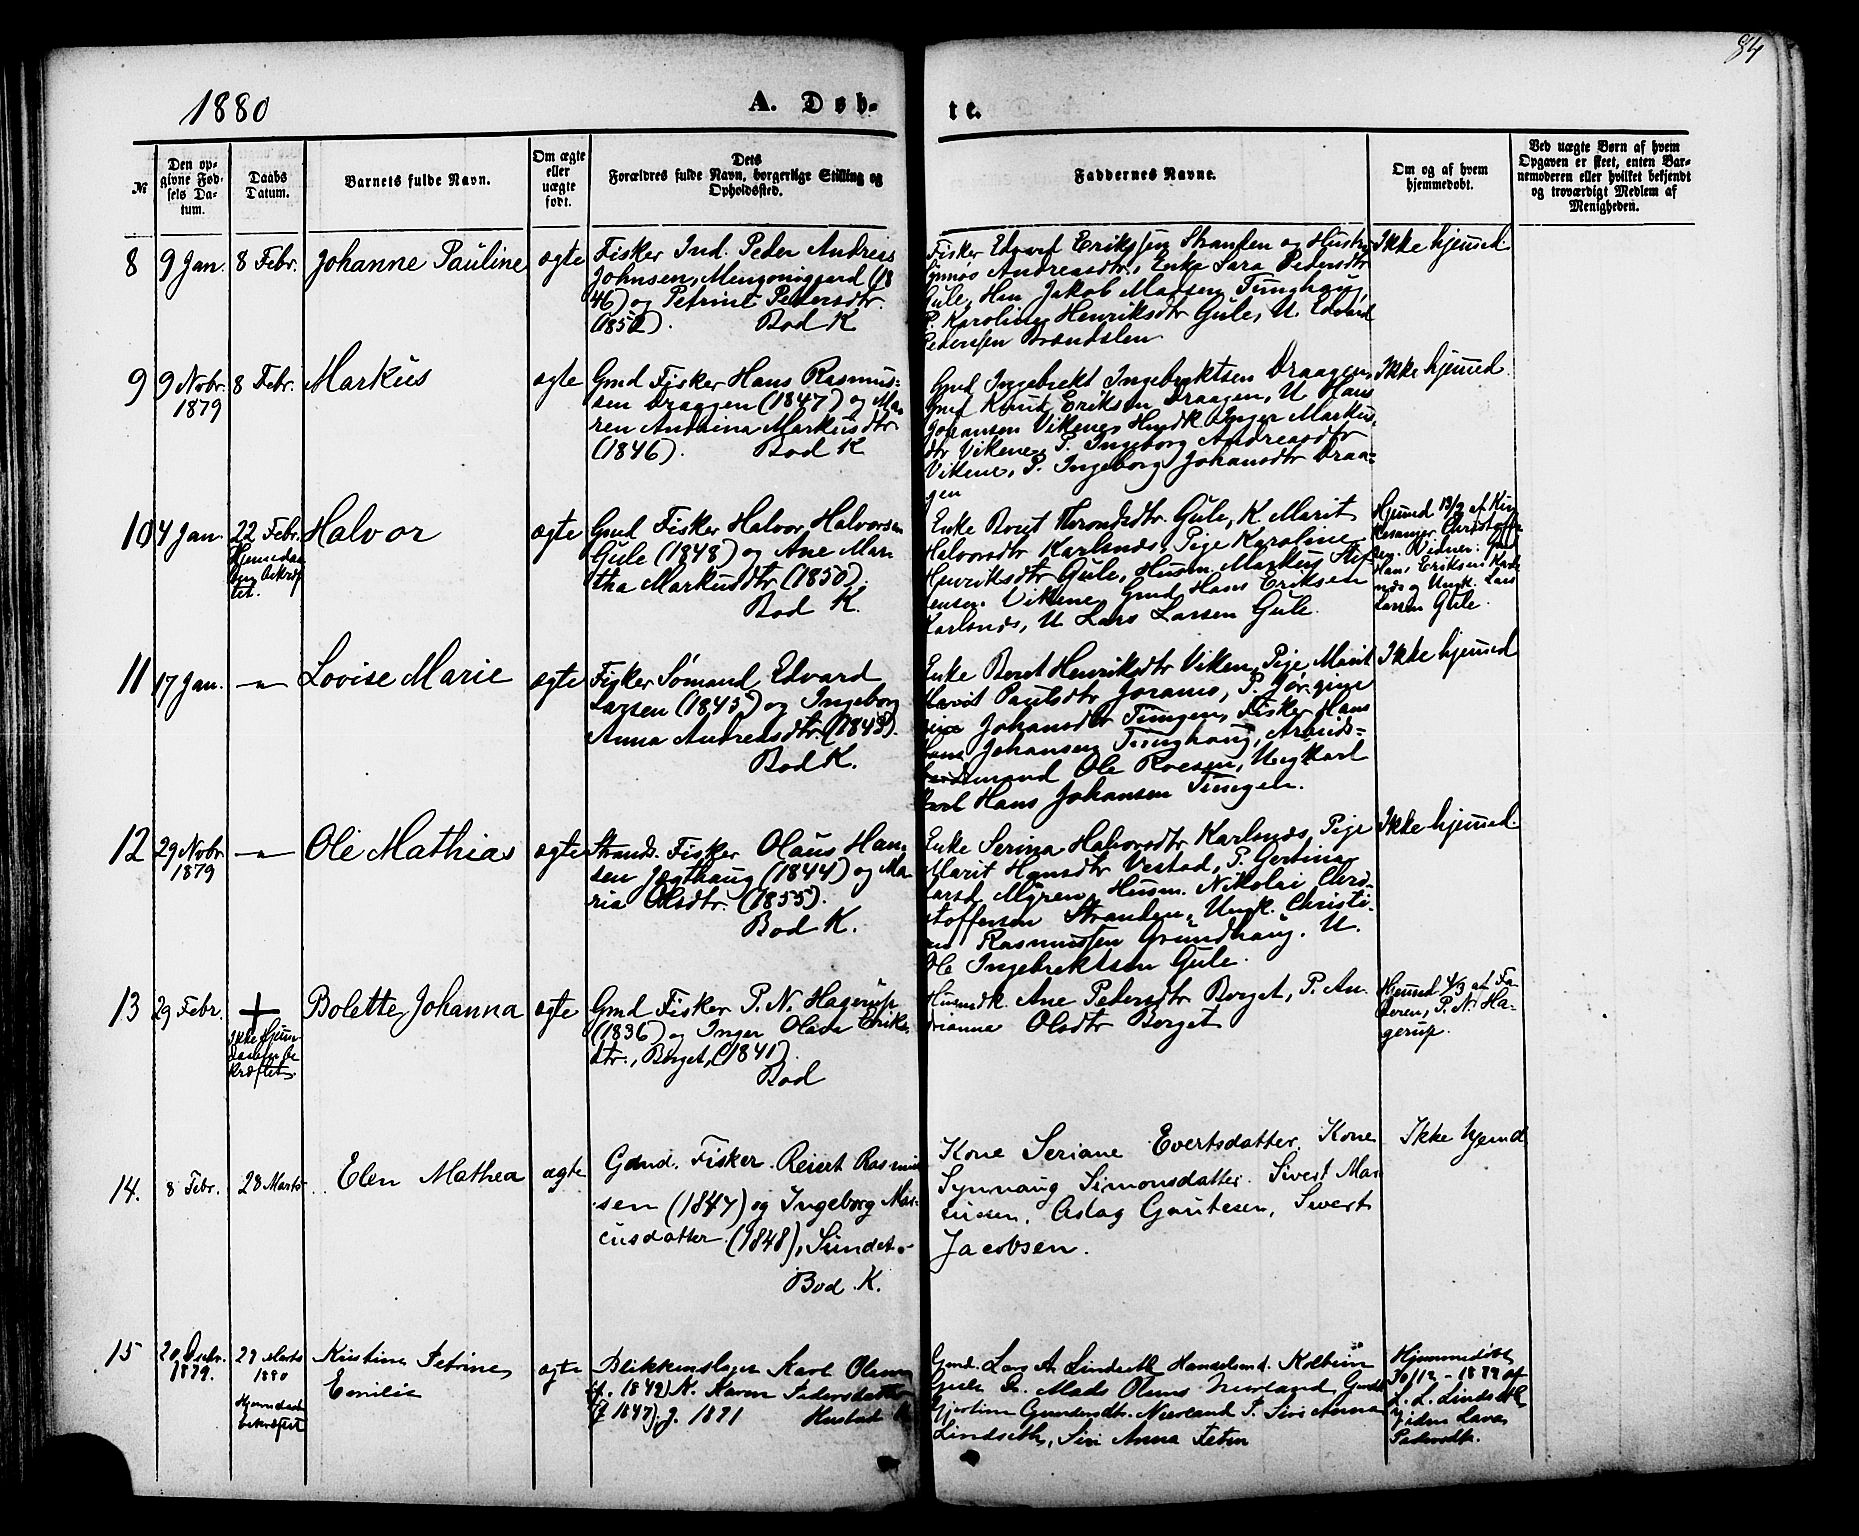 84
1880
A. Døb-
te.
№
Den op-
givne Fød-
sels Da-
tum.
Daabs
Datum.
Barnets fulde Navn.
Om ægte
eller
uægte
født.
Dets
Forældres fulde Navn, borgerlige Stilling og
Opholdssted.
Faddernes Navne.
Om og af hvem
hjemmedøbt.
Ved uægte Børn af hvem
Opgaven er skeet, enten Bar-
nemoderen eller hvilket bekjendt
og troværdigt Medlem af
Menigheden.
8 9 Jan. 8 Febr. Johanne Pauline ægte
Fisker Ind. Peder Andreas
Johnsen, (18
46) og Petrine Pedersdtr.
(1852). Bod K
Fisker Edvard Erikssen Stranden og Hustr
Andreasdtr., Enke Sara Pedersdtr
Gule, Jakob Madsen Tunghaug,
P. Karoline Henriksdtr Gule, U. Edvard
Pederssen
Ikke hjemmed.
9 9 Nobr. 1879 8 Febr. Markus ægte
Gmd Fisker Hans Rasmus-
sen Draagen (1847) og Ma-
ren Andrina Markusdtr
(1846). Bod K
Gmd Ingebrekt Ingebrektsen Draagen,
Gmd Knud Eriksen Draagen, U. Hans
Johansen Vikene, Inger Markus-
dtr Vikene, P. Ingeborg Andreasdtr
Vikene, P. Ingeborg Johansdtr Draa-
gen
Ikke hjemmed.
10 4 Jan. 22 Febr. Halvor ægte
Hjemmedaa-
ben bekræf-
tet.
Gmd Fisker Halvor Halvorsen
Gule (1848) og Ane Mar
tha Markusdtr (1850).
Bod K.
Enke Beret Thronsdtr. Gule, K. Marit
Halvorsdtr Karlsnds, Pige Karoline
Henriksdtr Gule, Husm. Markus Stef
fensen Vikene, Gmd Hans Eriksen
Karlsnds, U. Lars Larsen Gule.
Hjemmed 13/2 af Kir
kesanger Christoffer
sen. Vidner: Gmd
Hans Eriksen Karls
nds og Ungk. Lars
Larsen Gule.
11 17 Jan. —"— Lovise Marie ægte
Fisker Sømand Edvard
Larsen (1845) og Ingeborg
Anna Andreasdtr. (1848).
Bod K.
Enke Beret Henriksdtr Viken, Pige Marit
Paulsdtr Joramo, P. Jørgine
Johansdtr Tungen, Fisker Hans
Johansen Tunghaug, Arbeids-
mand Ole Roesen, Ungkarl
Hans Johansen Tungen.
Ikke hjemmed
12 29 Nobr. 1879 —"— Ole Mathias ægte
Strands. Fisker Olaus Han-
sen Jægthaug (1844) og Ma-
ria Olsdtr. (1855).
Bod K.
Enke Serina Halvorsdtr Karlsnds, Pige
Marit Hansdtr Vestad, P. Gertina
Larsd Myren, Husm. Nikolai Chri-
stoffersen Stranden, Ungk. Christi-
an Rasmussen Grundhaug. U.
Ole Ingebrektsen Gule.
Ikke hjemmed.
13 29 Febr. + Bolette Johanna ægte
Ikke Hjem-
daaben be
kræftet.
Gmd Fisker P. N. Hagerup
(1836) og Inger Olava Eriks-
dtr., Berget, (1841).
Bod
Ane Pedersdtr Berget, P. An-
drianna Olsdtr Berget
Hjemmed 4/3 af Fa-
deren, P. N. Ha-
gerup.
14. 8 Febr. 28 Marts Elen Mathea ægte
Gmd. Fisker Reiert Rasmus
sen (1847) og Ingeborg Mar-
cusdatter (1848), Sundet.
Bod K.
Kone Seriane Evertsdatter. Kone
Synnaug Simonsdatter. Sivert Mar-
Aslag Gautesen, Sivert
Jacobsen.
Ikke hjemd
15 20 Decbr. 1879. 29 Marts 1880 Kristine Petrine Emilie ægte
Hjemmedaab
bekræftet
Blikkenslager Karl Olsen
(f. 1842) K. Karen Pedersdatter
(f 1847), g. 1871 Hustad K
Gmd. Lars A. Lindseth Kolbein
Mads Olsens Nerland, Gmdk
Gjertine Gundersdtr. Nerland P. Siri Anna
Lindseth, Siri Anna Feten
Hjemmedøbt
30/12 - 1879 af
L. L. Lindseth
Lava
Pedersdtr.